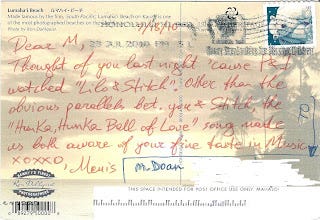 Lumaha'i Beach ルマハイ・ビーチ
Made famous by the film, South Pacific, Lumaha'i Beach on Kaua'i is one
of the most photographed beaches on the
Photo by Ron Dahlquist
HONO
7/18/10
23 JUL 2010 PM
Dear M,
Thought of you last night 'cause P & I
watched "Lilo & Stitch". Other than the
obvious parallels bet. you & Stitch, the
"Hunka, Hunka Ball of Love" song made
us both aware of your fine taste in Music.
xoxxo,
M. Doan
TO
THIS SPACE INTENDED FOR POST OFFICE USE ONLY. MAHALO!